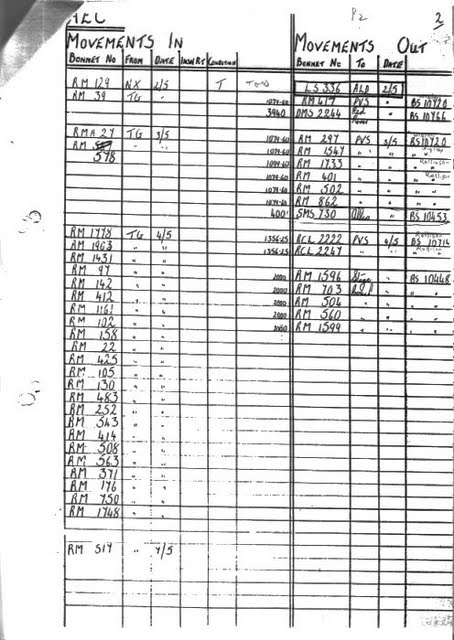 P2
2
MOVEMENTS IN
MOVEMENTS OUT
BONNET NO FROM DATE INSURT CONDITION
BONNET NO TO DATE
RM 129 NX 2/5 T
RM 39 TG "
RMA 27 TG 3/5
RM
578
RM 1778 TG 4/5
RM 1903 " "
RM 1431 " "
RM 97 " "
RM 142 " "
RM 412 " "
RM 1161 " "
RM 102 " "
RM 158 " "
RM 22 " "
RM 425 " "
RM 105 " "
RM 130 " "
RM 483 " "
RM 252 " "
RM 543 " "
RM 414 " "
RM 508 " "
RM 563 " "
RM 371 " "
RM 176 " "
RM 750 " "
RM 1748 " "
RM 517 " 4/5
LS 336 ALD 2/5
1074-60 RM 417 PVS " BS 10720
3940 DMS 2244 " BS 10766
1074-60 RM 297 PVS 3/5 BS 10720
1074-60 RM 1547 " " "
1074-60 RM 1733 " " "
1074-60 RM 401 " " "
1074-60 RM 502 " " "
1074-60 RM 862 " " "
400 SMS 730 " BS 10453
1356-25 RCL 2222 PVS 4/5 BS 10714
1356-25 RCL 2247 " " "
2000 RM 1596 " BS 10448
2000 RM 703 " " "
2000 RM 504 " " "
2000 RM 560 " " "
2000 RM 1599 " " "